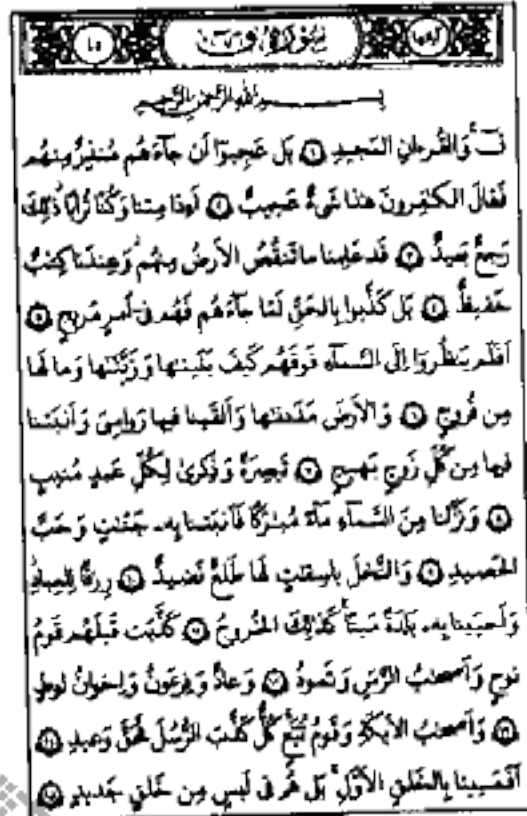 آياتها سُورَةُ ق ٤٥
بِسْمِ اللَّهِ الرَّحْمَٰنِ الرَّحِيمِ
قٓ ۚ وَالْقُرْءَانِ الْمَجِيدِ ١ بَلْ عَجِبُوٓا أَن جَآءَهُم مُّنذِرٌ مِّنْهُمْ
فَقَالَ الْكَٰفِرُونَ هَٰذَا شَىْءٌ عَجِيبٌ ٢ أَءِذَا مِتْنَا وَكُنَّا تُرَابًا ۖ ذَٰلِكَ
رَجْعٌ بَعِيدٌ ٣ قَدْ عَلِمْنَا مَا تَنقُصُ الْأَرْضُ مِنْهُمْ ۖ وَعِندَنَا كِتَٰبٌ
حَفِيظٌ ٤ بَلْ كَذَّبُوا بِالْحَقِّ لَمَّا جَآءَهُمْ فَهُمْ فِىٓ أَمْرٍ مَّرِيجٍ ٥
أَفَلَمْ يَنظُرُوٓا إِلَى السَّمَآءِ فَوْقَهُمْ كَيْفَ بَنَيْنَٰهَا وَزَيَّنَّٰهَا وَمَا لَهَا
مِن فُرُوجٍ ٦ وَالْأَرْضَ مَدَدْنَٰهَا وَأَلْقَيْنَا فِيهَا رَوَٰسِىَ وَأَنۢبَتْنَا
فِيهَا مِن كُلِّ زَوْجٍۭ بَهِيجٍ ٧ تَبْصِرَةً وَذِكْرَىٰ لِكُلِّ عَبْدٍ مُّنِيبٍ
٨ وَنَزَّلْنَا مِنَ السَّمَآءِ مَآءً مُّبَٰرَكًا فَأَنۢبَتْنَا بِهِۦ جَنَّٰتٍ وَحَبَّ
الْحَصِيدِ ٩ وَالنَّخْلَ بَاسِقَٰتٍ لَّهَا طَلْعٌ نَّضِيدٌ ١٠ رِّزْقًا لِّلْعِبَادِ ۖ
وَأَحْيَيْنَا بِهِۦ بَلْدَةً مَّيْتًا ۚ كَذَٰلِكَ الْخُرُوجُ ١١ كَذَّبَتْ قَبْلَهُمْ قَوْمُ
نُوحٍ وَأَصْحَٰبُ الرَّسِّ وَثَمُودُ ١٢ وَعَادٌ وَفِرْعَوْنُ وَإِخْوَٰنُ لُوطٍ
١٣ وَأَصْحَٰبُ الْأَيْكَةِ وَقَوْمُ تُبَّعٍ ۚ كُلٌّ كَذَّبَ الرُّسُلَ فَحَقَّ وَعِيدِ ١٤
أَفَعَيِينَا بِالْخَلْقِ الْأَوَّلِ ۚ بَلْ هُمْ فِى لَبْسٍ مِّنْ خَلْقٍ جَدِيدٍ ١٥